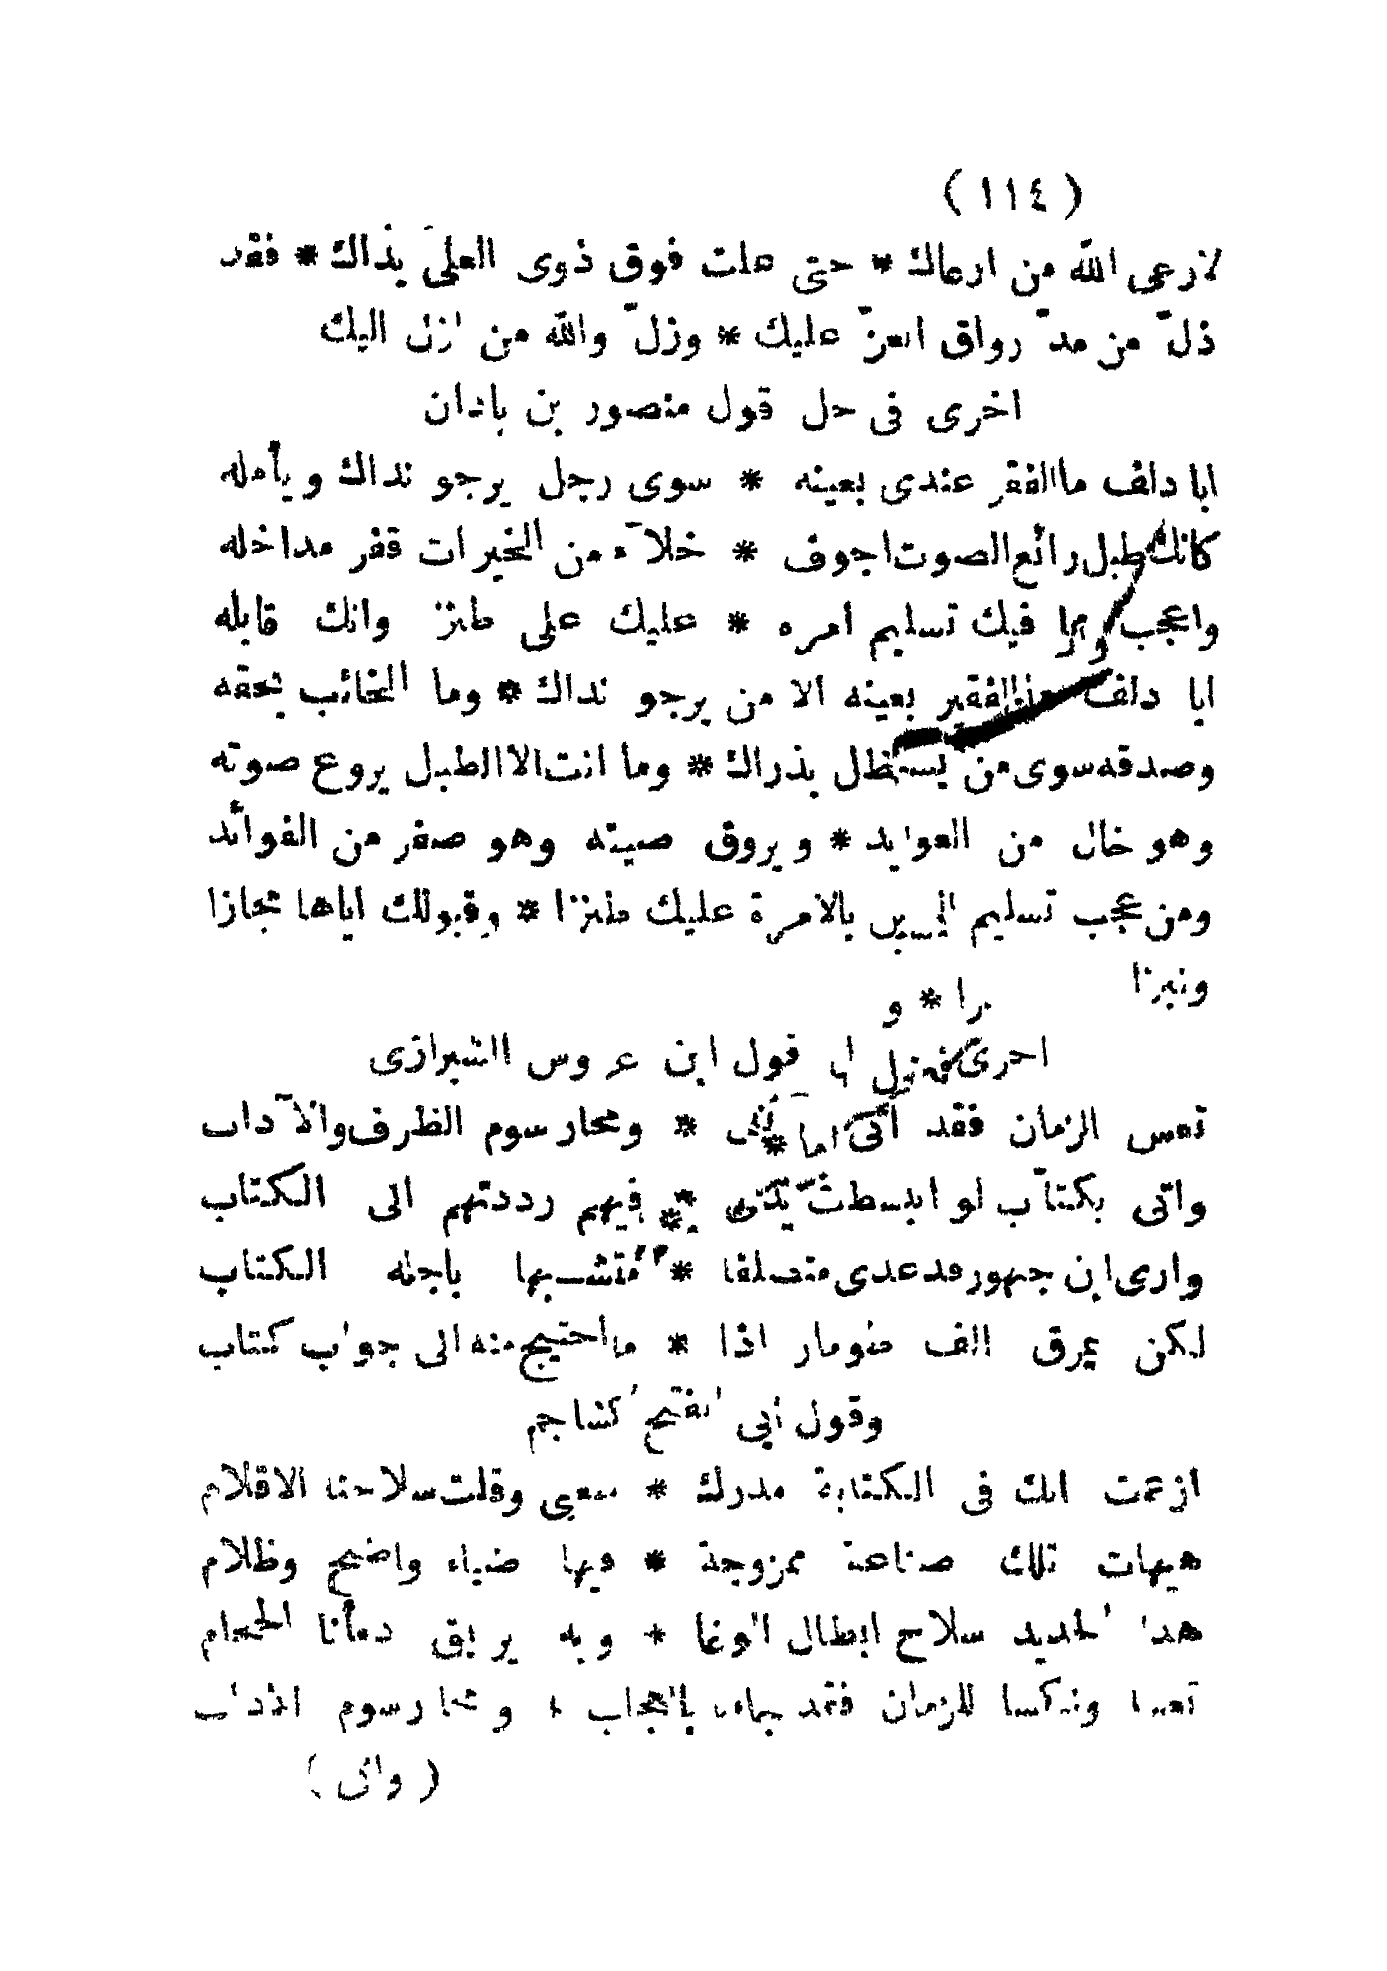 ( ١١٤ )
لارعى الله من ارعاك * حتى علت فوق ذوى العلى يذاك * فقد
ذلّ من مدّ رواق العزّ عليك * وزلّ والله من ازل اليك
اخرى فى حل قول منصور بن باذان
ابا دلف ما الفقر عندى بعينه * سوى رجل يرجو نداك ويأمله
كانك طبل رائع الصوت اجوف * خلآء من الخيرات قفر مداخله
واعجب مما فيك تسليم امره * عليك على طنز وانك قابله
ابا دلف الفقير بعينه الا من يرجو نداك * وما الخائب بحقه
وصدقه سوى من يستظل بذراك * وما انت الا الطبل يروع صوته
وهو خال من العوايد * ويروق صيته وهو صفر من الفوائد
ومن عجب تسليم بالامرة عليك طنزا * وقبولك اياها مجازا
ونبزا
اخرى قول ابن عروس الشيرازى
تعس الزمان فقد أتى * ومحا رسوم الظرف والآداب
واتى بكتاّب لو انبسطت يدى * فيهم رددتهم الى الكتاب
وارى ابن جهور قد عدى متصلفا * متشبها باجله الكتاب
لكن يمرق الف طومار اذا * ما احتيج منه الى جواب كتاب
وقول أبى الفتح كشاجم
ازعمت انك فى الكتابة مدرك * سعيى وقلت سلاحنا الاقلام
هيهات تلك صناعة ممزوجة * فيها ضياء واضح وظلام
هذا الحديد سلاح ابطال الوغا * وبه يريق دمأنا الحجام
تعسا ونكسا للزمان فقد جاء بالعجاب * ومحا رسوم الاداب
( واتى )